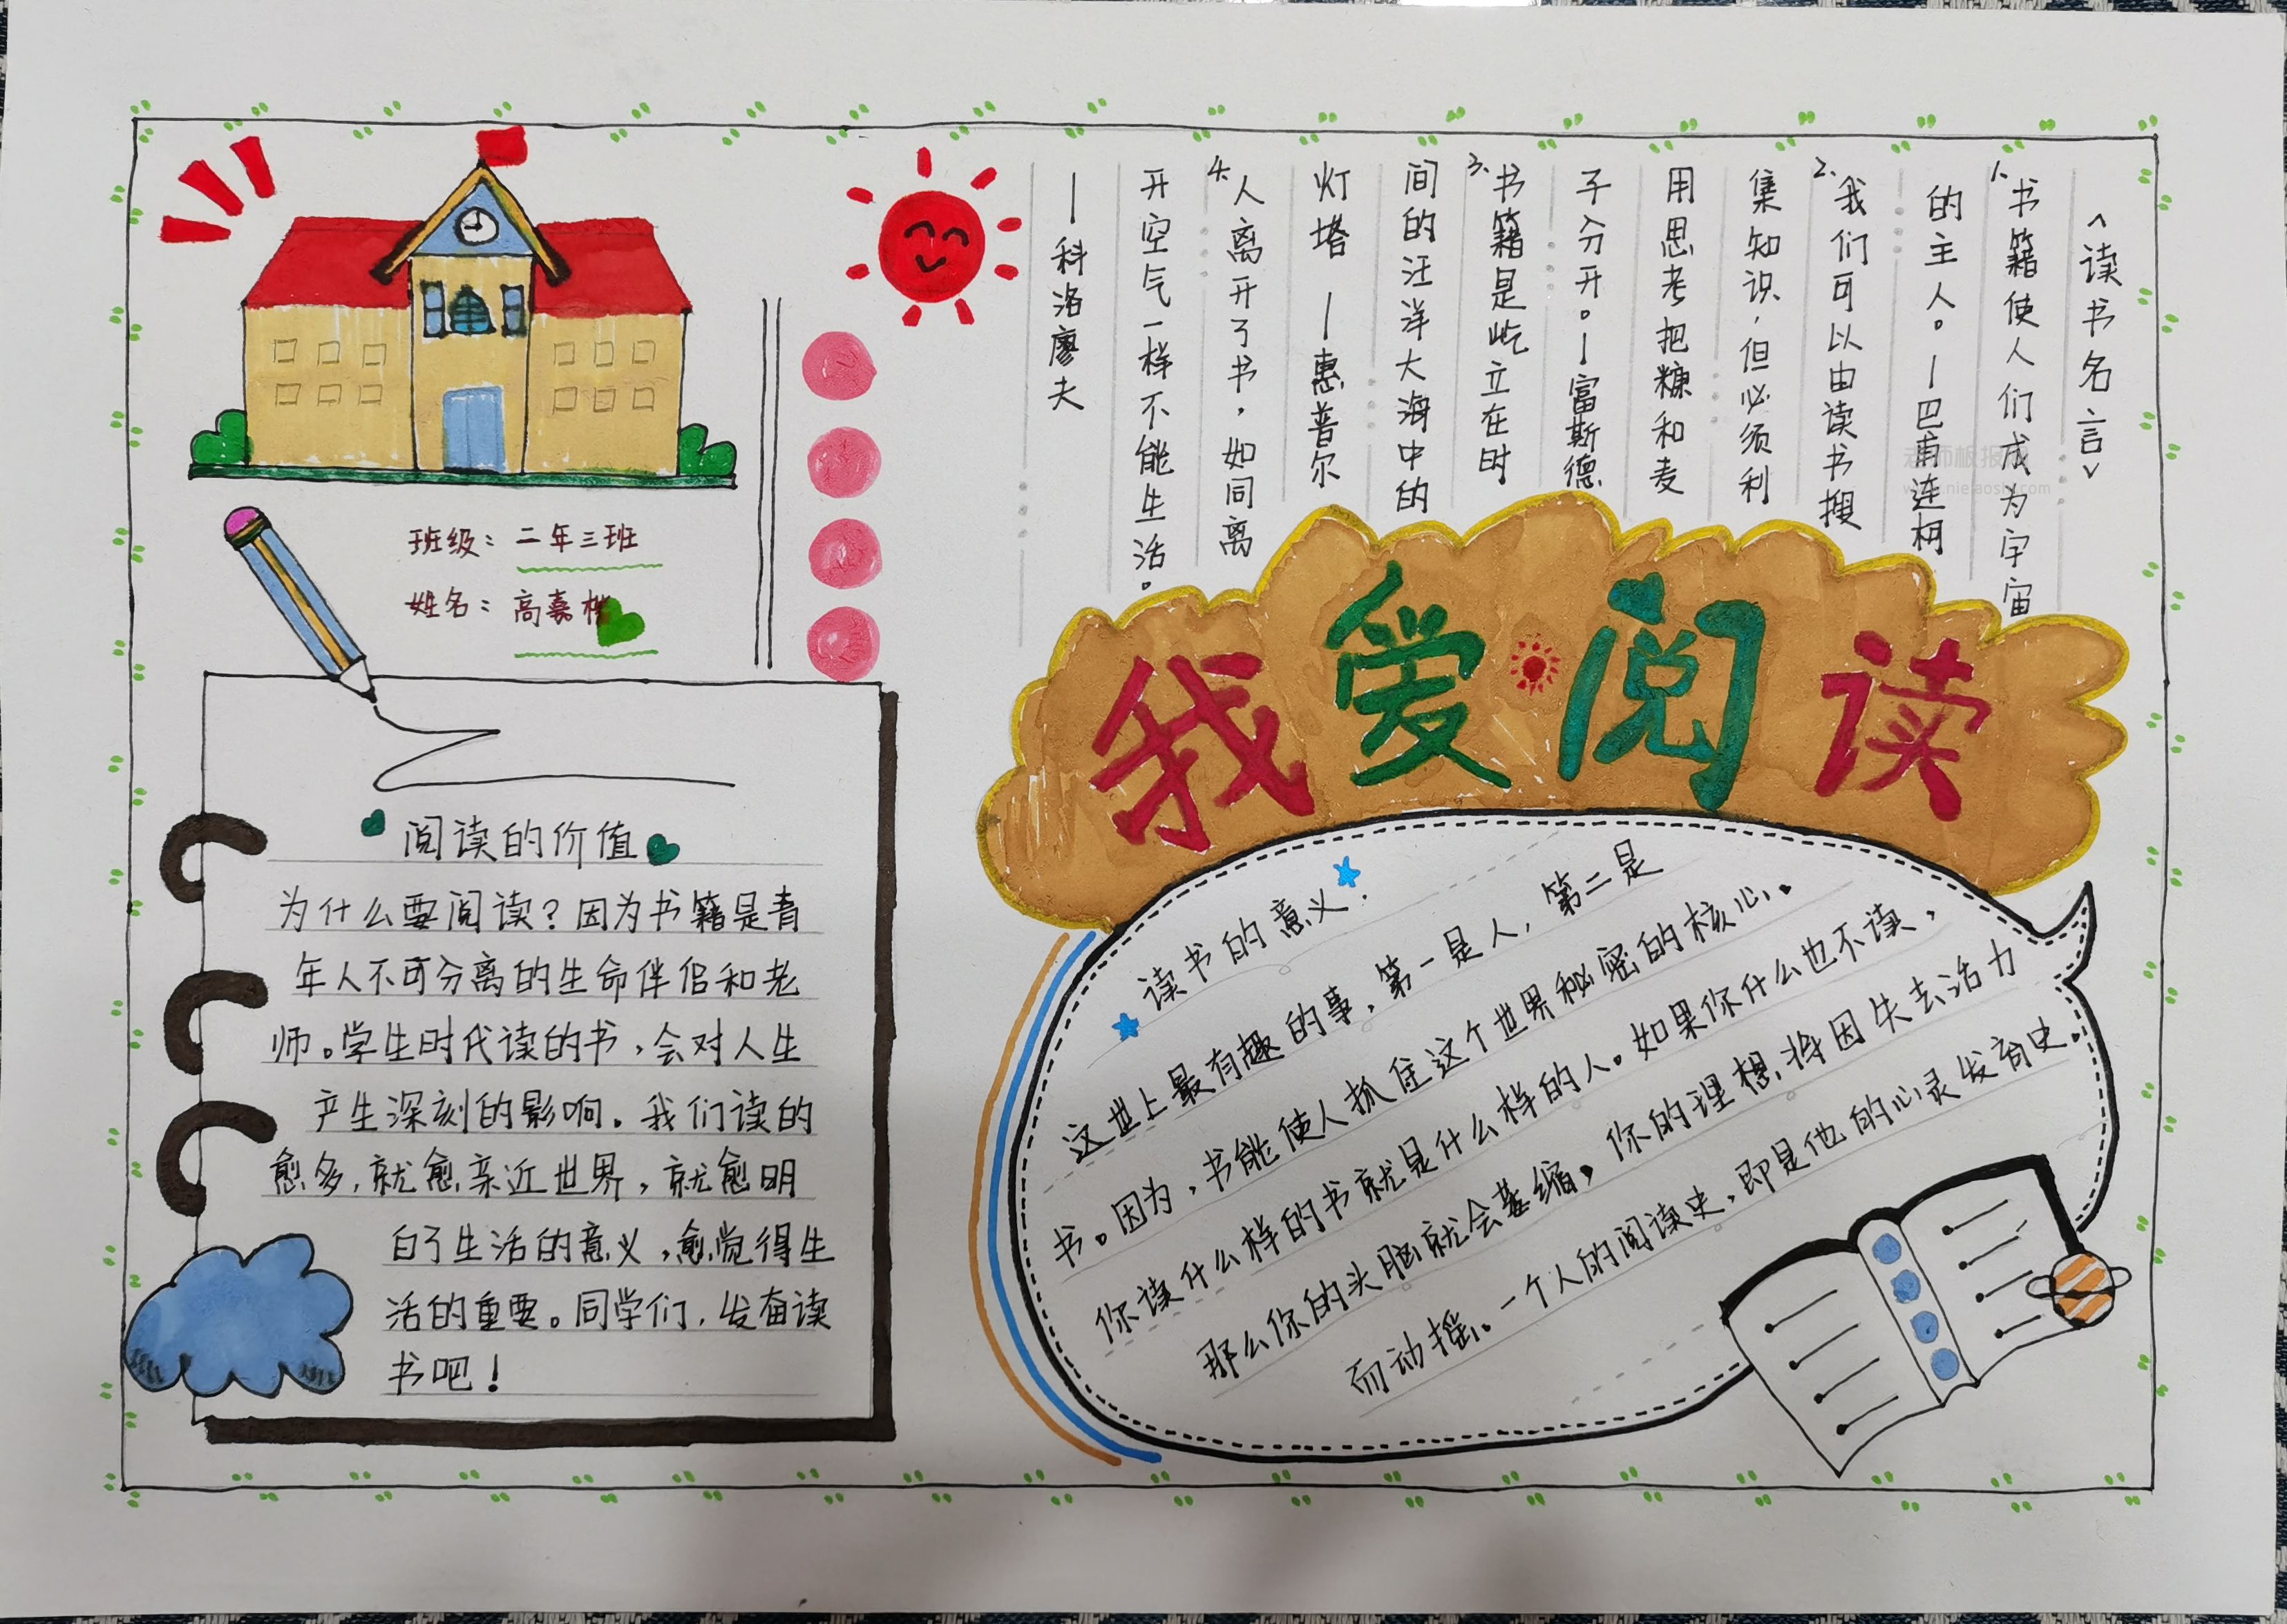 班级：二年三班
姓名：高嘉
阅读的价值
为什么要阅读？因为书籍是青
年人不可分离的生命伴侣和老
师。学生时代读的书，会对人生
产生深刻的影响。我们读的
愈多，就愈亲近世界，就愈明
白了生活的意义，愈觉得生
活的重要。同学们，发奋读
书吧！
<读书名言>
1.书籍使人们成为宇宙
的主人。—巴甫连柯
2.我们可以由读书搜
集知识，但必须利
用思考把糠和麦
子分开。—富斯德
3.书籍是屹立在时
间的汪洋大海中的
灯塔 —惠普尔
4.人离开了书，如同离
开空气一样不能生活。
—科洛廖夫
我爱阅读
读书的意义：
这世上最有趣的事，第一是人，第二是
书。因为，书能使人抓住这个世界秘密的核心。
你读什么样的书就是什么样的人。如果你什么也不读，
那么你的头脑就会萎缩，你的理想，将因失去活力
而动摇。一个人的阅读史，即是他的心灵发育史。